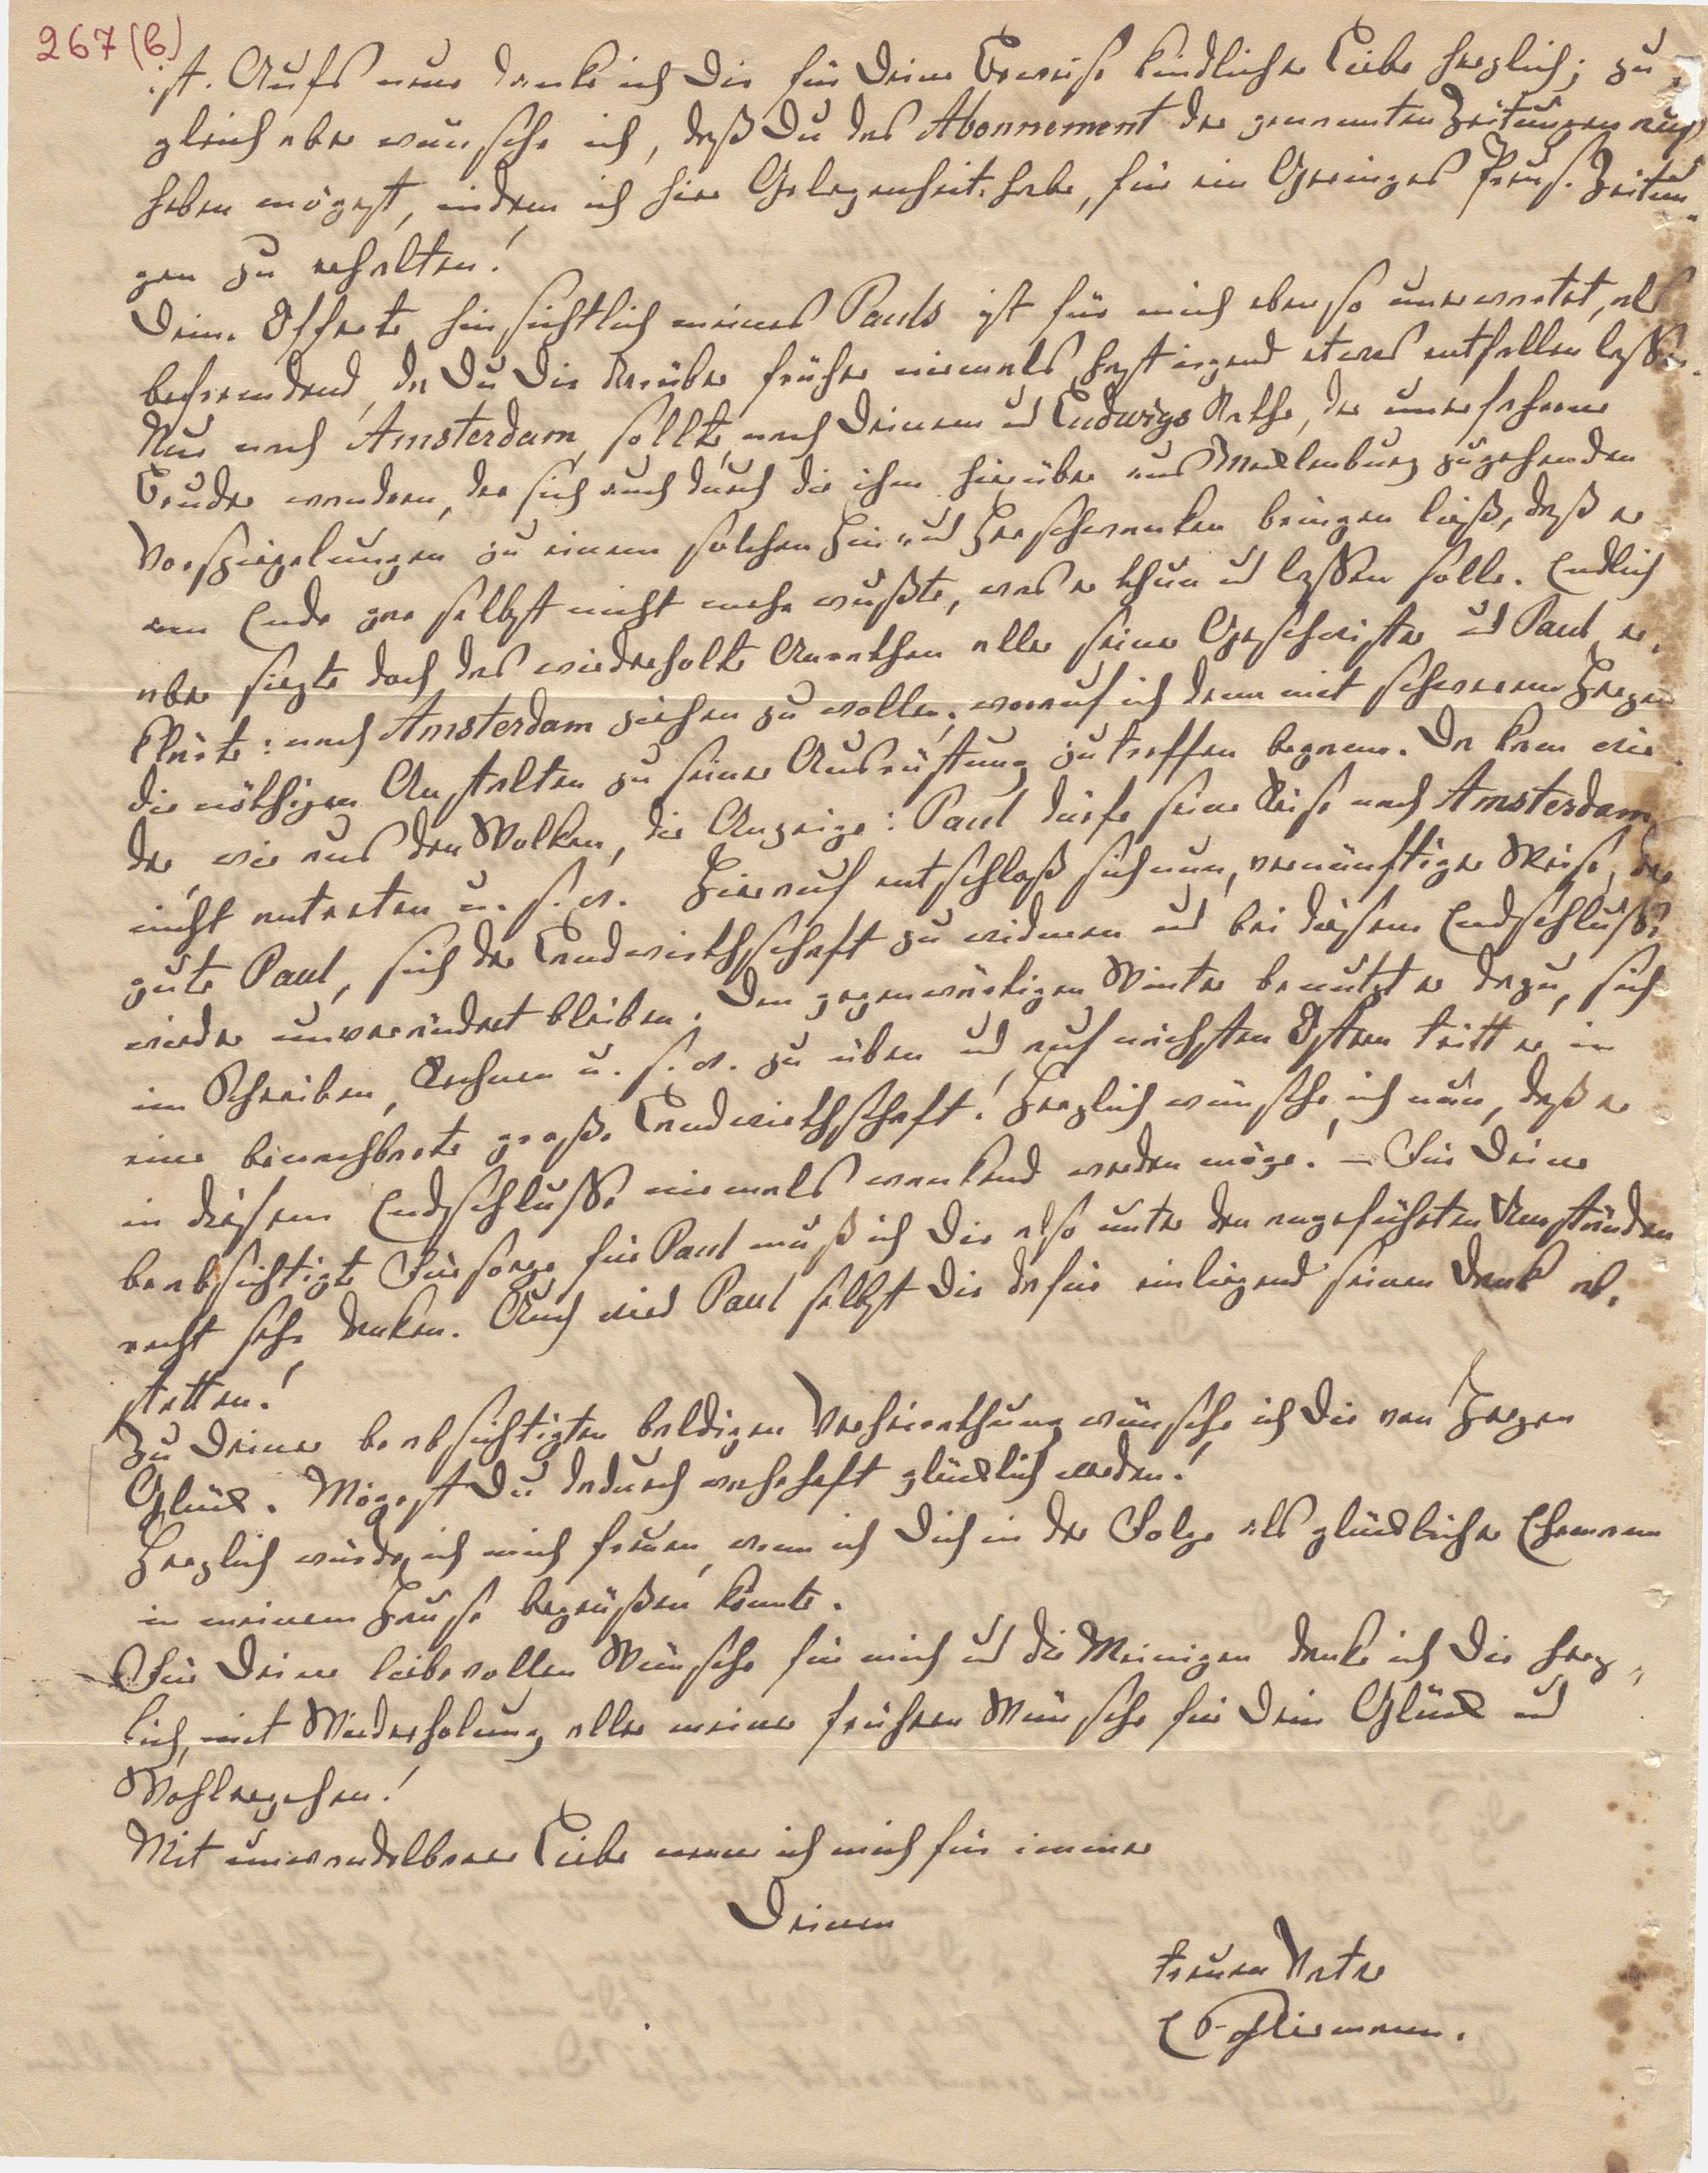 267 (b)
ist. Aufs neue danke ich Dir für Deine Beweise kindlicher Liebe herzlich; zu-
gleich aber wünsche ich, daß Du das Abonnement der genannten Zeitungen auf-
heben mögest, indem ich hier Gelegenheit habe, für ein Geringes Preuß. Zeitun-
gen zu erhalten!
Deine Offerte hinsichtlich meines Pauls ist für mich eben so unerwartet, als
befremdend, da Du Dir darüber früher niemals hast irgend etwas entfallen lassen.
Nur nach Amsterdam sollte, nach Deinem und Ludwigs Rathe, der unerfahrene
Bruder wandern, der sich auch durch die ihm hierüber aus Mecklenburg zugehenden
Vorspiegelungen zu einem solchen Hin und Herschwanken bringen ließ, daß er
am Ende gar selbst nicht mehr wußte, was er thun und lassen solle. Endlich
aber siegte doch das wiederholte Anrathen aller seiner Geschwister und Paul er-
klärte: nach Amsterdam ziehen zu wollen; worauf ich denn mit schwerem Herzen
die nöthigen Anstalten zu seiner Ausrüstung zu treffen begann. Da kam wie-
der wie aus den Wolken, die Anzeige: Paul dürfe seine Reise nach Amsterdam
nicht antreten u. s. w. Hierauf entschloß sich nun, vernünftiger Weise, der
gute Paul, sich der Landwirthschaft zu widmen und bei diesem Endschlusse
wird er unverändert bleiben. Den gegenwärtigen Winter benutzt er dazu, sich
im Schreiben, Rechnen u. s. w. zu üben und auf nächsten Ostern tritt er in
eine benachbarte große Landwirthschaft! Herzlich wünsche ich nun, daß er
in diesem Endschlusse niemals wankend werden möge! — Für Deine
beabsichtigte Fürsorge für Paul muß ich Dir also unter den angeführten Umständen
recht sehr danken. Auch wird Paul selbst Dir dafür einliegend seinen Dank ab-
statten!
Zu Deiner beabsichtigten baldigen Verheirathung wünsche ich Dir von Herzen
Glück. Mögest Du dadurch wahrhaft glücklich werden!
Herzlich würde ich mich freuen, wenn ich Dich in der Folge als glücklicher Ehemann
in meinem Hause begrüßen könnte.
Für Deine liebevollen Wünsche für mich und die Meinigen danke ich Dir herz-
lich, mit Wiederholung aller meiner frühern Wünsche für Dein Glück und
Wohlergehen!
Mit unwandelbarer Liebe nenne ich mich für immer
Deinen
treuen Vater
E Schliemann.